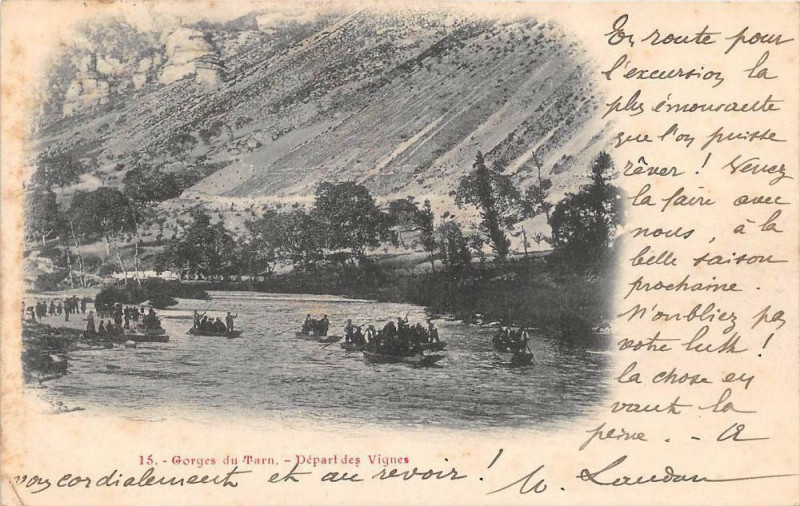 En route pour
l'excursion la
plus émouvante
que l'on puisse
rêver ! Venez
la faire avec
nous, à la
belle saison
prochaine.
N'oubliez pas
votre luth !
la chose en
vaut la
peine. -
15. - Gorges du Tarn. - Départ des Vignes
cordialement et au revoir !